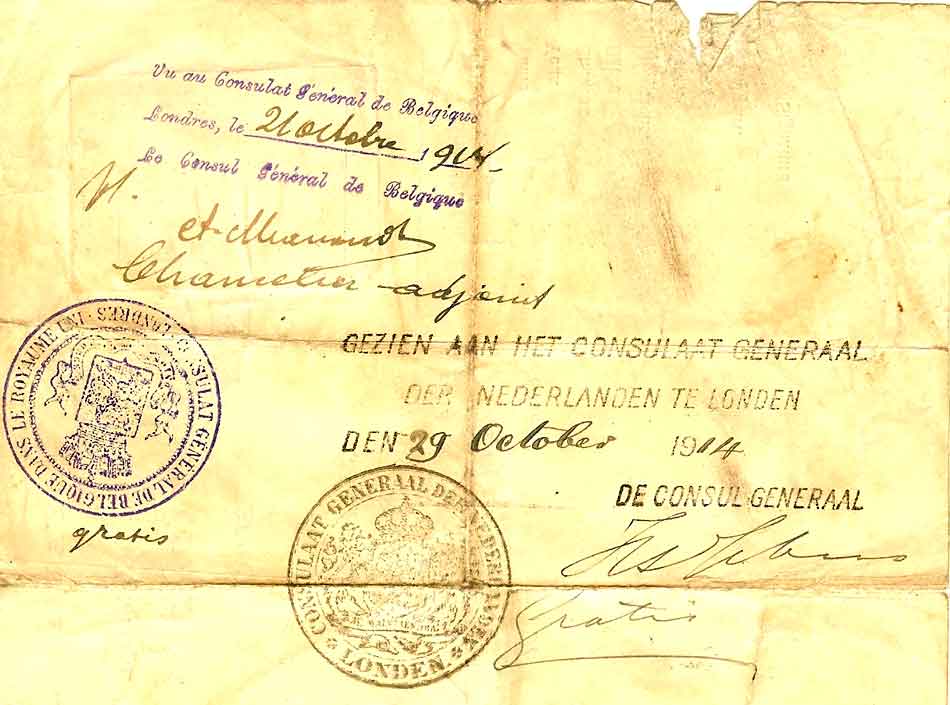 Vu au Consulat Général de Belgique
Londres, le 21 octobre 1914.
Le Consul Général de Belgique
adjoint
CONSULAT GENERAL DE BELGIQUE DANS LE ROYAUME UNI · LONDRES ·
gratis
GEZIEN AAN HET CONSULAAT GENERAAL
DER NEDERLANDEN TE LONDEN
DEN 29 October 1914
DE CONSUL GENERAAL
CONSULAAT GENERAAL DER NEDERLANDEN
LONDEN
Gratis